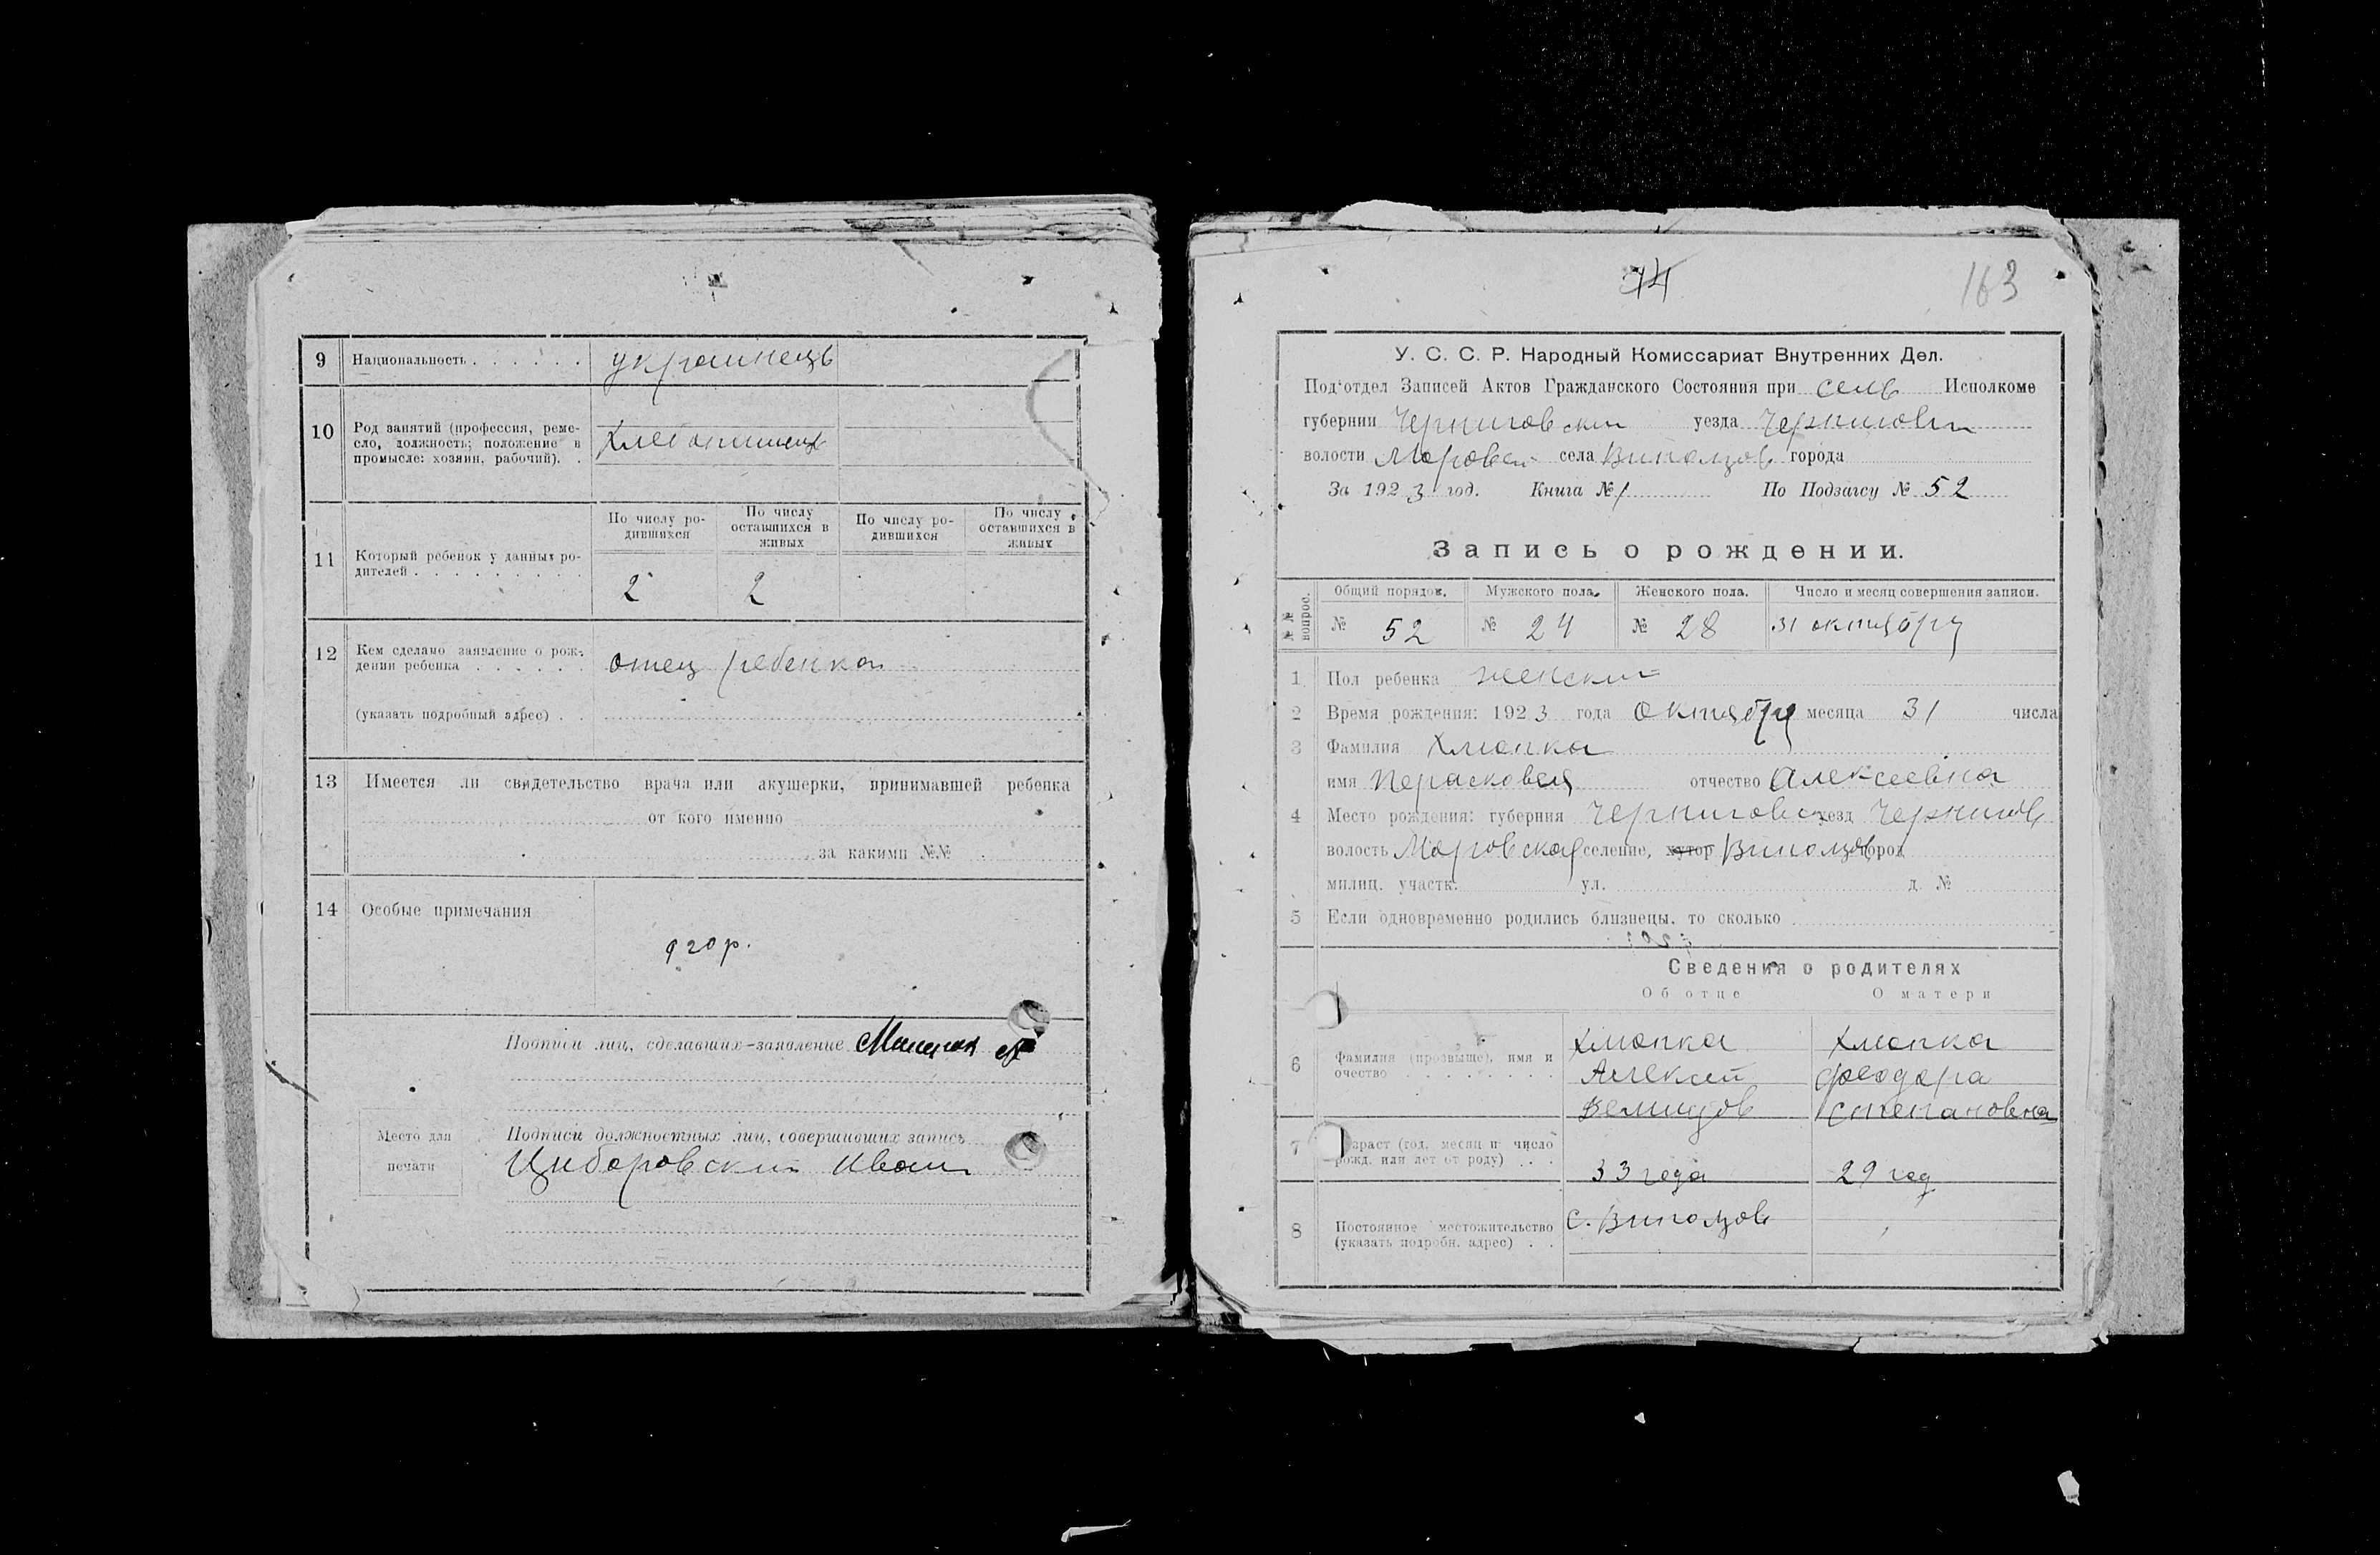 9 Национальность . . . . . . украинець
10 Род занятий (профессия, реме-
сло, должность; положение в
промысле: хозяин, рабочий). . Хлебопишець
11 Который ребенок у данных ро-
дителей . . . . . . . . .
По числу ро-
дившихся
По числу
оставшихся в
живых
По числу ро-
дившихся
По числу
оставшихся в
живых
2 2
12 Кем сделано заявление о рож-
дении ребенка . . . . . . отец ребенка
(указать подробный адрес) . .
13 Имеется ли свидетельство врача или акушерки, принимавшей ребенка
от кого именно
за какими №№
14 Особые примечания
Подписи лиц, сделавших заявление
Место для
печати
Подписи должностных лиц, совершивших запись
Циборовский Иван
74 163
У. С. С. Р. Народный Комиссариат Внутренних Дел.
Подотдел Записей Актов Гражданского Состояния при сель Исполкоме
губернии Черниговский уезда Чернигов
волости Моровск села Виползов города
За 1923 год. Книга № 1 По Подзагсу № 52
Запись о рождении.
№ № вопрос.
Общий порядок. Мужского пола. Женского пола. Число и месяц совершения записи.
№ 52 № 24 № 28 31 октября
1 Пол ребенка женский
2 Время рождения: 1923 года Октября месяца 31 числа
3 Фамилия Хлопка
имя Парасковея отчество Алексеевна
4 Место рождения: губерния Черниговс уезд Чернигов
волость Моровская селение, хутор Виползов город
милиц. участк. ул. д. №
5 Если одновременно родились близнецы, то сколько
Сведения о родителях
Об отце О матери
6 Фамилия (прозвище), имя и
очество . . . . . . . . .
Хлопка Хлопка
Алексей Феодора
Демидов Степановна
7 Возраст (год, месяц и число
рожд. или лет от роду) . . . 33 года 29 год
8 Постоянное местожительство
(указать подробн. адрес) . . с. Виползов